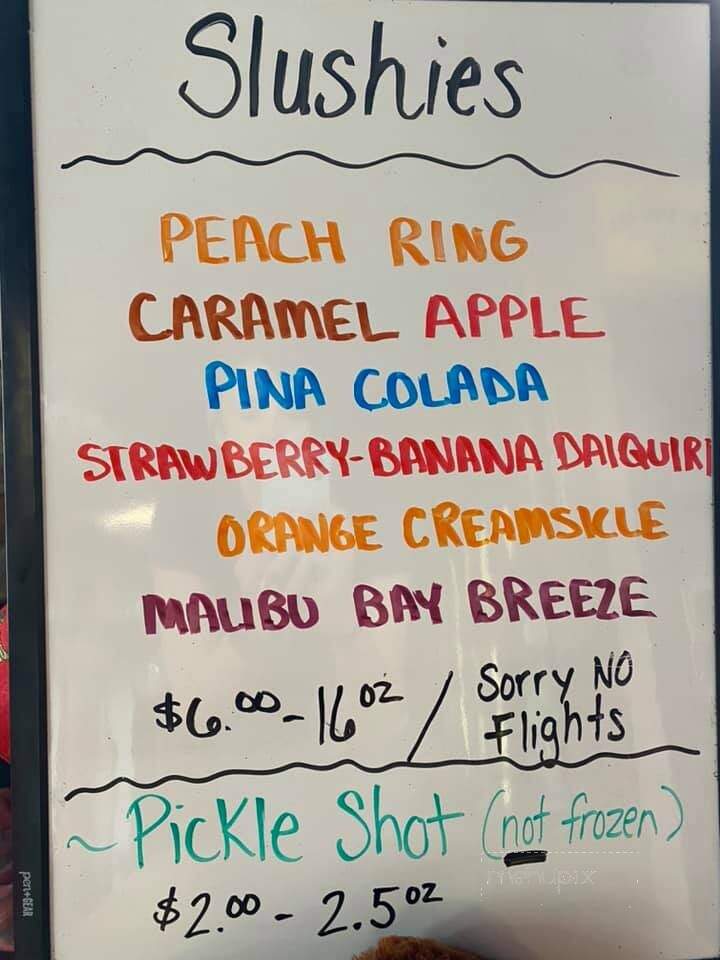 Slushies
PEACH RING
CARAMEL APPLE
PINA COLADA
STRAWBERRY-BANANA DAIQUIRI
ORANGE CREAMSICLE
MALIBU BAY BREEZE
$6.00 - 16 oz / Sorry NO Flights
~ Pickle Shot (not frozen)
$2.00 - 2.5 oz
pen+GEAR
menupix